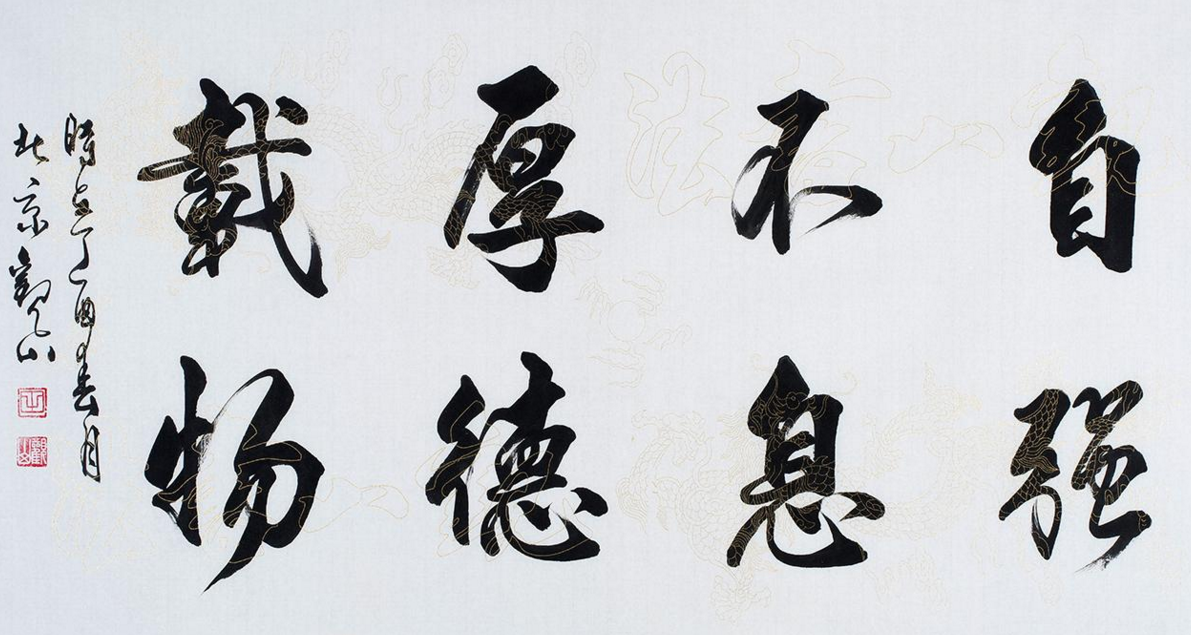 自强
不息
厚德
载物
时在丁酉春月
北京观山